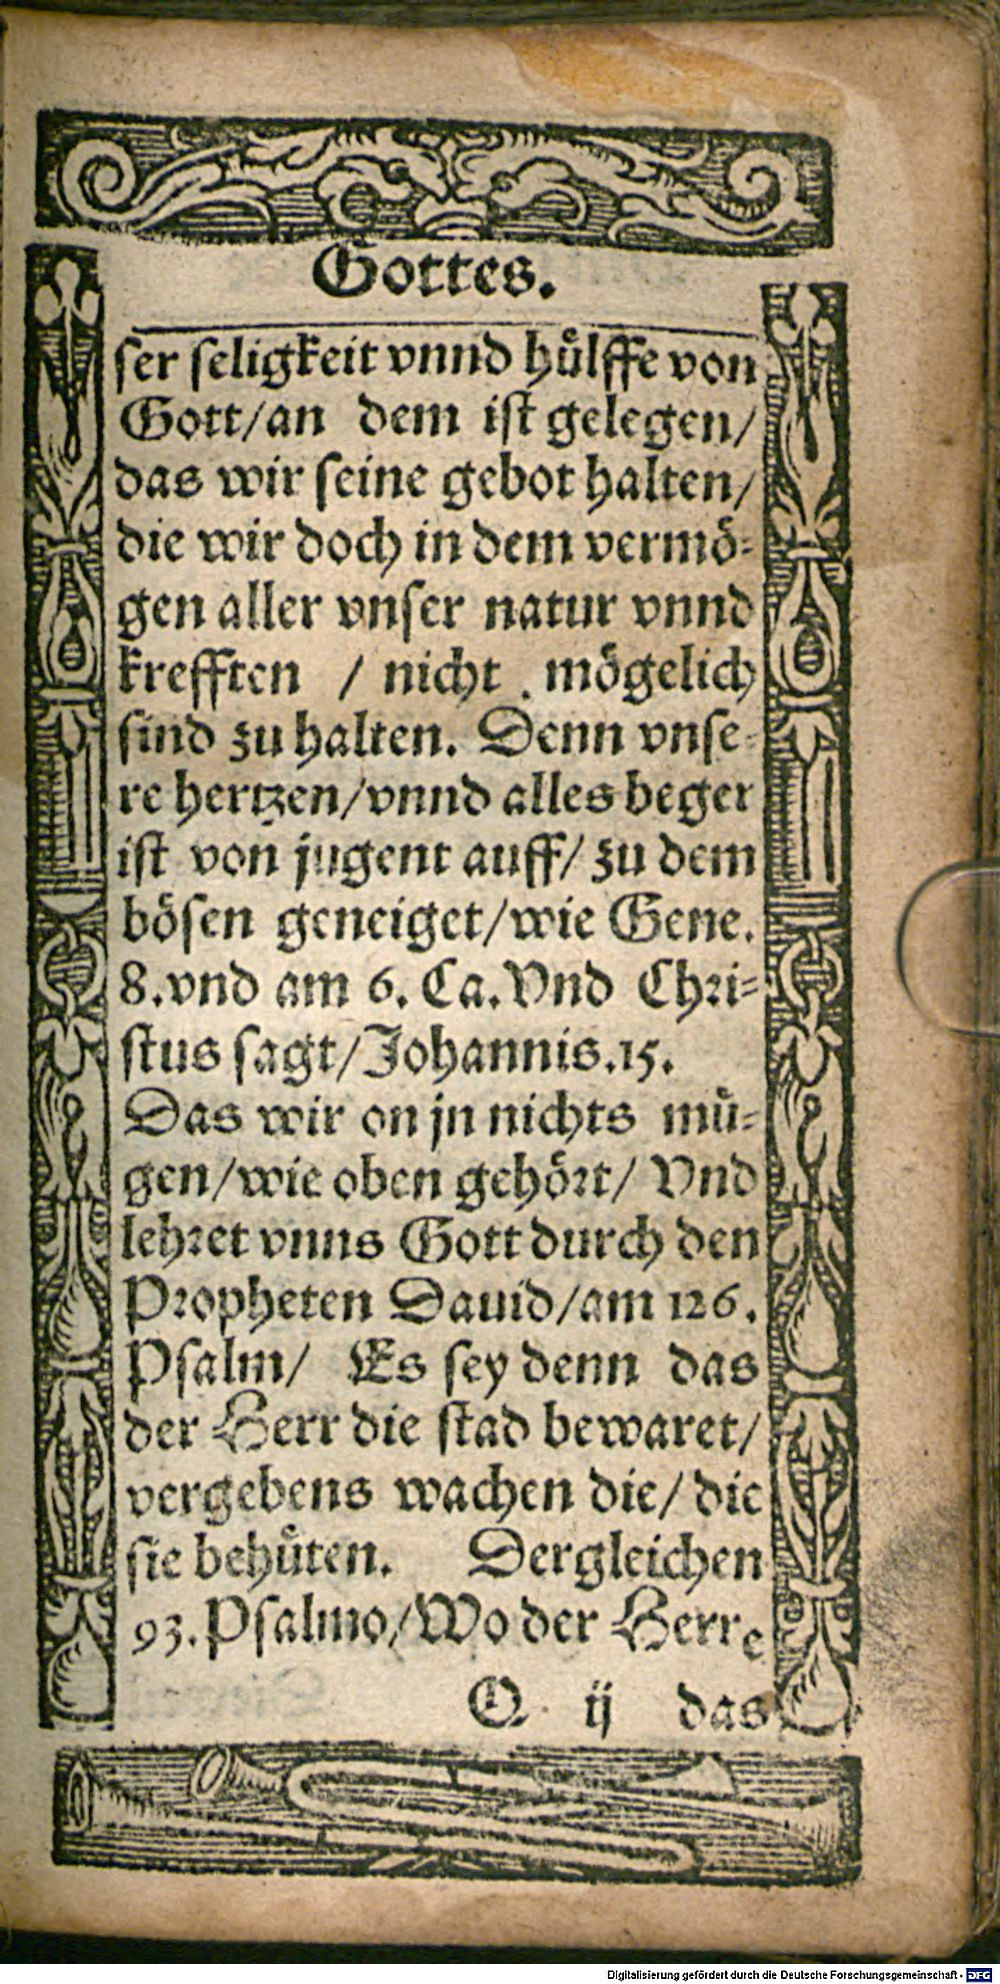 Gottes.
ſer ſeligkeit vnnd huͤlffe von
Gott/an dem iſt gelegen/
das wir ſeine gebot halten/
die wir doch in dem vermoͤ⸗
gen aller vnſer natur vnnd
krefften / nicht moͤgelich
ſind zu halten. Denn vnſe⸗
re hertzen/vnnd alles beger
iſt von jugent auff/ zu dem
boͤſen geneiget/wie Gene.
8.vnd am 6. Ca. Vnd Chri⸗
ſtus ſagt/Johannis.15.
Das wir on jn nichts muͤ⸗
gen/wie oben gehoͤrt/ Vnd
lehret vnns Gott durch den
Propheten Dauid/am 126.
Pſalm/ Es ſey denn das
der Herr die ſtad bewaret/
vergebens wachen die/ die
ſie behuͤten. Dergleichen
93. Pſalmo/Wo der Herre
Q ij das
Digitalisierung gefördert durch die Deutsche Forschungsgemeinschaft - DFG